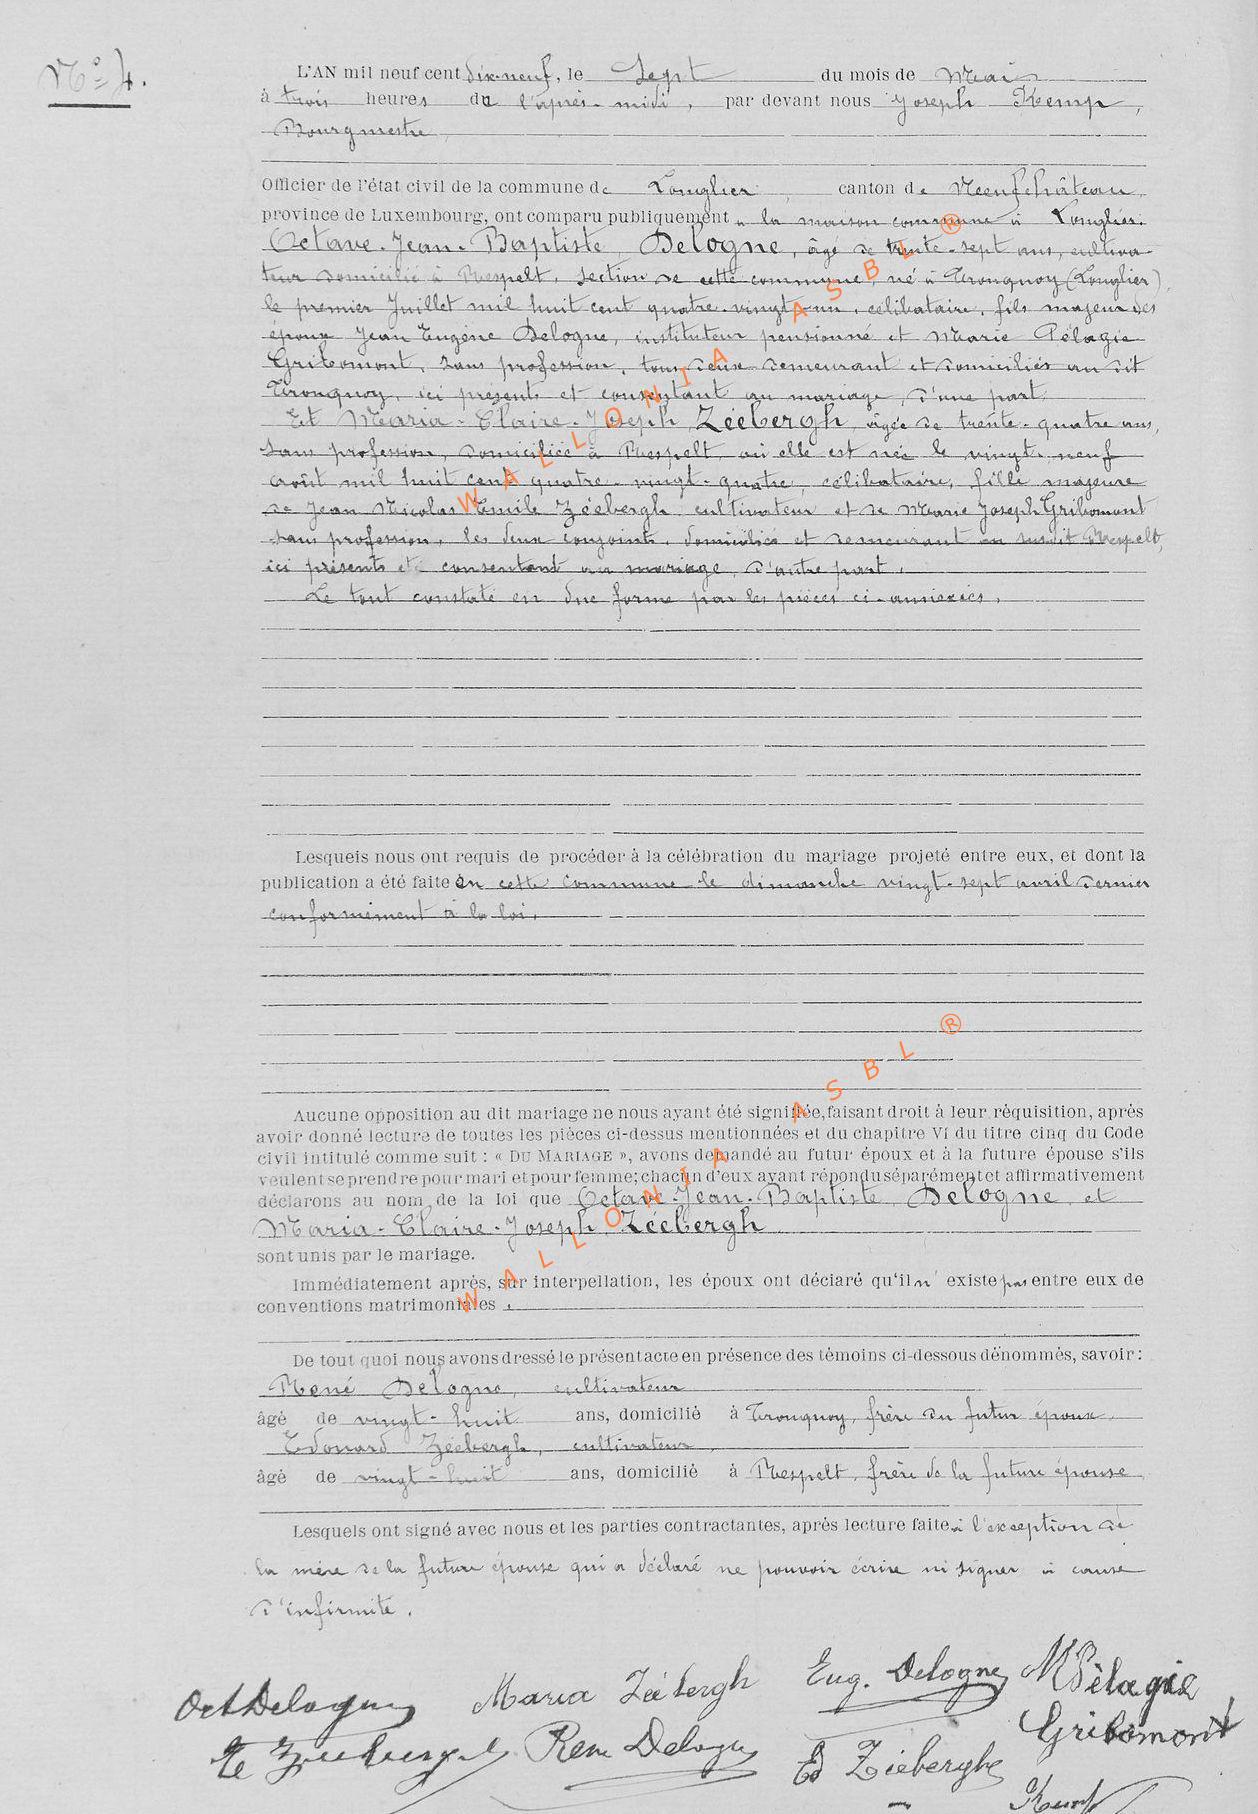 N° 4.
L'AN mil neuf cent dix-neuf, le Sept du mois de Mai
à trois heures du l'après-midi, par devant nous Joseph Kemp,
Bourgmestre,
Officier de l'état civil de la commune de Longlier, canton de Neufchâteau,
province de Luxembourg, ont comparu publiquement à la maison commune à Longlier.
Octave-Jean-Baptiste Delogne, âgé de trente-sept ans, cultiva-
teur domicilié à Respelt, section de cette commune, né à Tronquoy (Longlier),
le premier Juillet mil huit cent quatre-vingt-un, célibataire, fils majeur des
époux Jean Eugène Delogne, instituteur pensionné et Marie Pélagie
Gribomont, sans profession, tous deux demeurant et domiciliés au dit
Tronquoy, ici présents et consentant au mariage, d'une part.
Et Maria-Claire-Joseph Zéebergh, âgée de trente-quatre ans,
sans profession, domiciliée à Respelt où elle est née le vingt-neuf
août mil huit cent quatre-vingt-quatre, célibataire, fille majeure
de Jean Nicolas Emile Zéebergh cultivateur et de Marie Joseph Gribomont
sans profession, les deux conjoints, domiciliés et demeurant au susdit Respelt,
ici présents et consentant au mariage, d'autre part.
Le tout constaté en due forme par les pièces ci-annexées.
Lesquels nous ont requis de procéder à la célébration du mariage projeté entre eux, et dont la
publication a été faite en cette commune le dimanche vingt-sept avril dernier
conformément à la loi.
Aucune opposition au dit mariage ne nous ayant été signifiée, faisant droit à leur réquisition, après
avoir donné lecture de toutes les pièces ci-dessus mentionnées et du chapitre VI du titre cinq du Code
civil intitulé comme suit : « DU MARIAGE », avons demandé au futur époux et à la future épouse s'ils
veulent se prendre pour mari et pour femme; chacun d'eux ayant répondu séparément et affirmativement
déclarons au nom de la loi que Octave-Jean-Baptiste Delogne et
Maria-Claire-Joseph Zéebergh
sont unis par le mariage.
Immédiatement après, sur interpellation, les époux ont déclaré qu'il n'existe pas entre eux de
conventions matrimoniales.
De tout quoi nous avons dressé le présent acte en présence des témoins ci-dessous dénommés, savoir :
René Delogne, cultivateur
âgé de vingt-huit ans, domicilié à Tronquoy, frère du futur époux.
Edouard Zéebergh, cultivateur,
âgé de vingt-huit ans, domicilié à Respelt, frère de la future épouse,
Lesquels ont signé avec nous et les parties contractantes, après lecture faite à l'exception de
la mère de la future épouse qui a déclaré ne pouvoir écrire ni signer à cause
d'infirmité.
Oct Delogne Maria Zéebergh Eug. Delogne M Pèlagie
Gribomont
E Zeebergh René Delogne Ed Zéeberghe
Kemp
WALLONIA ASBL ®
WALLONIA ASBL ®